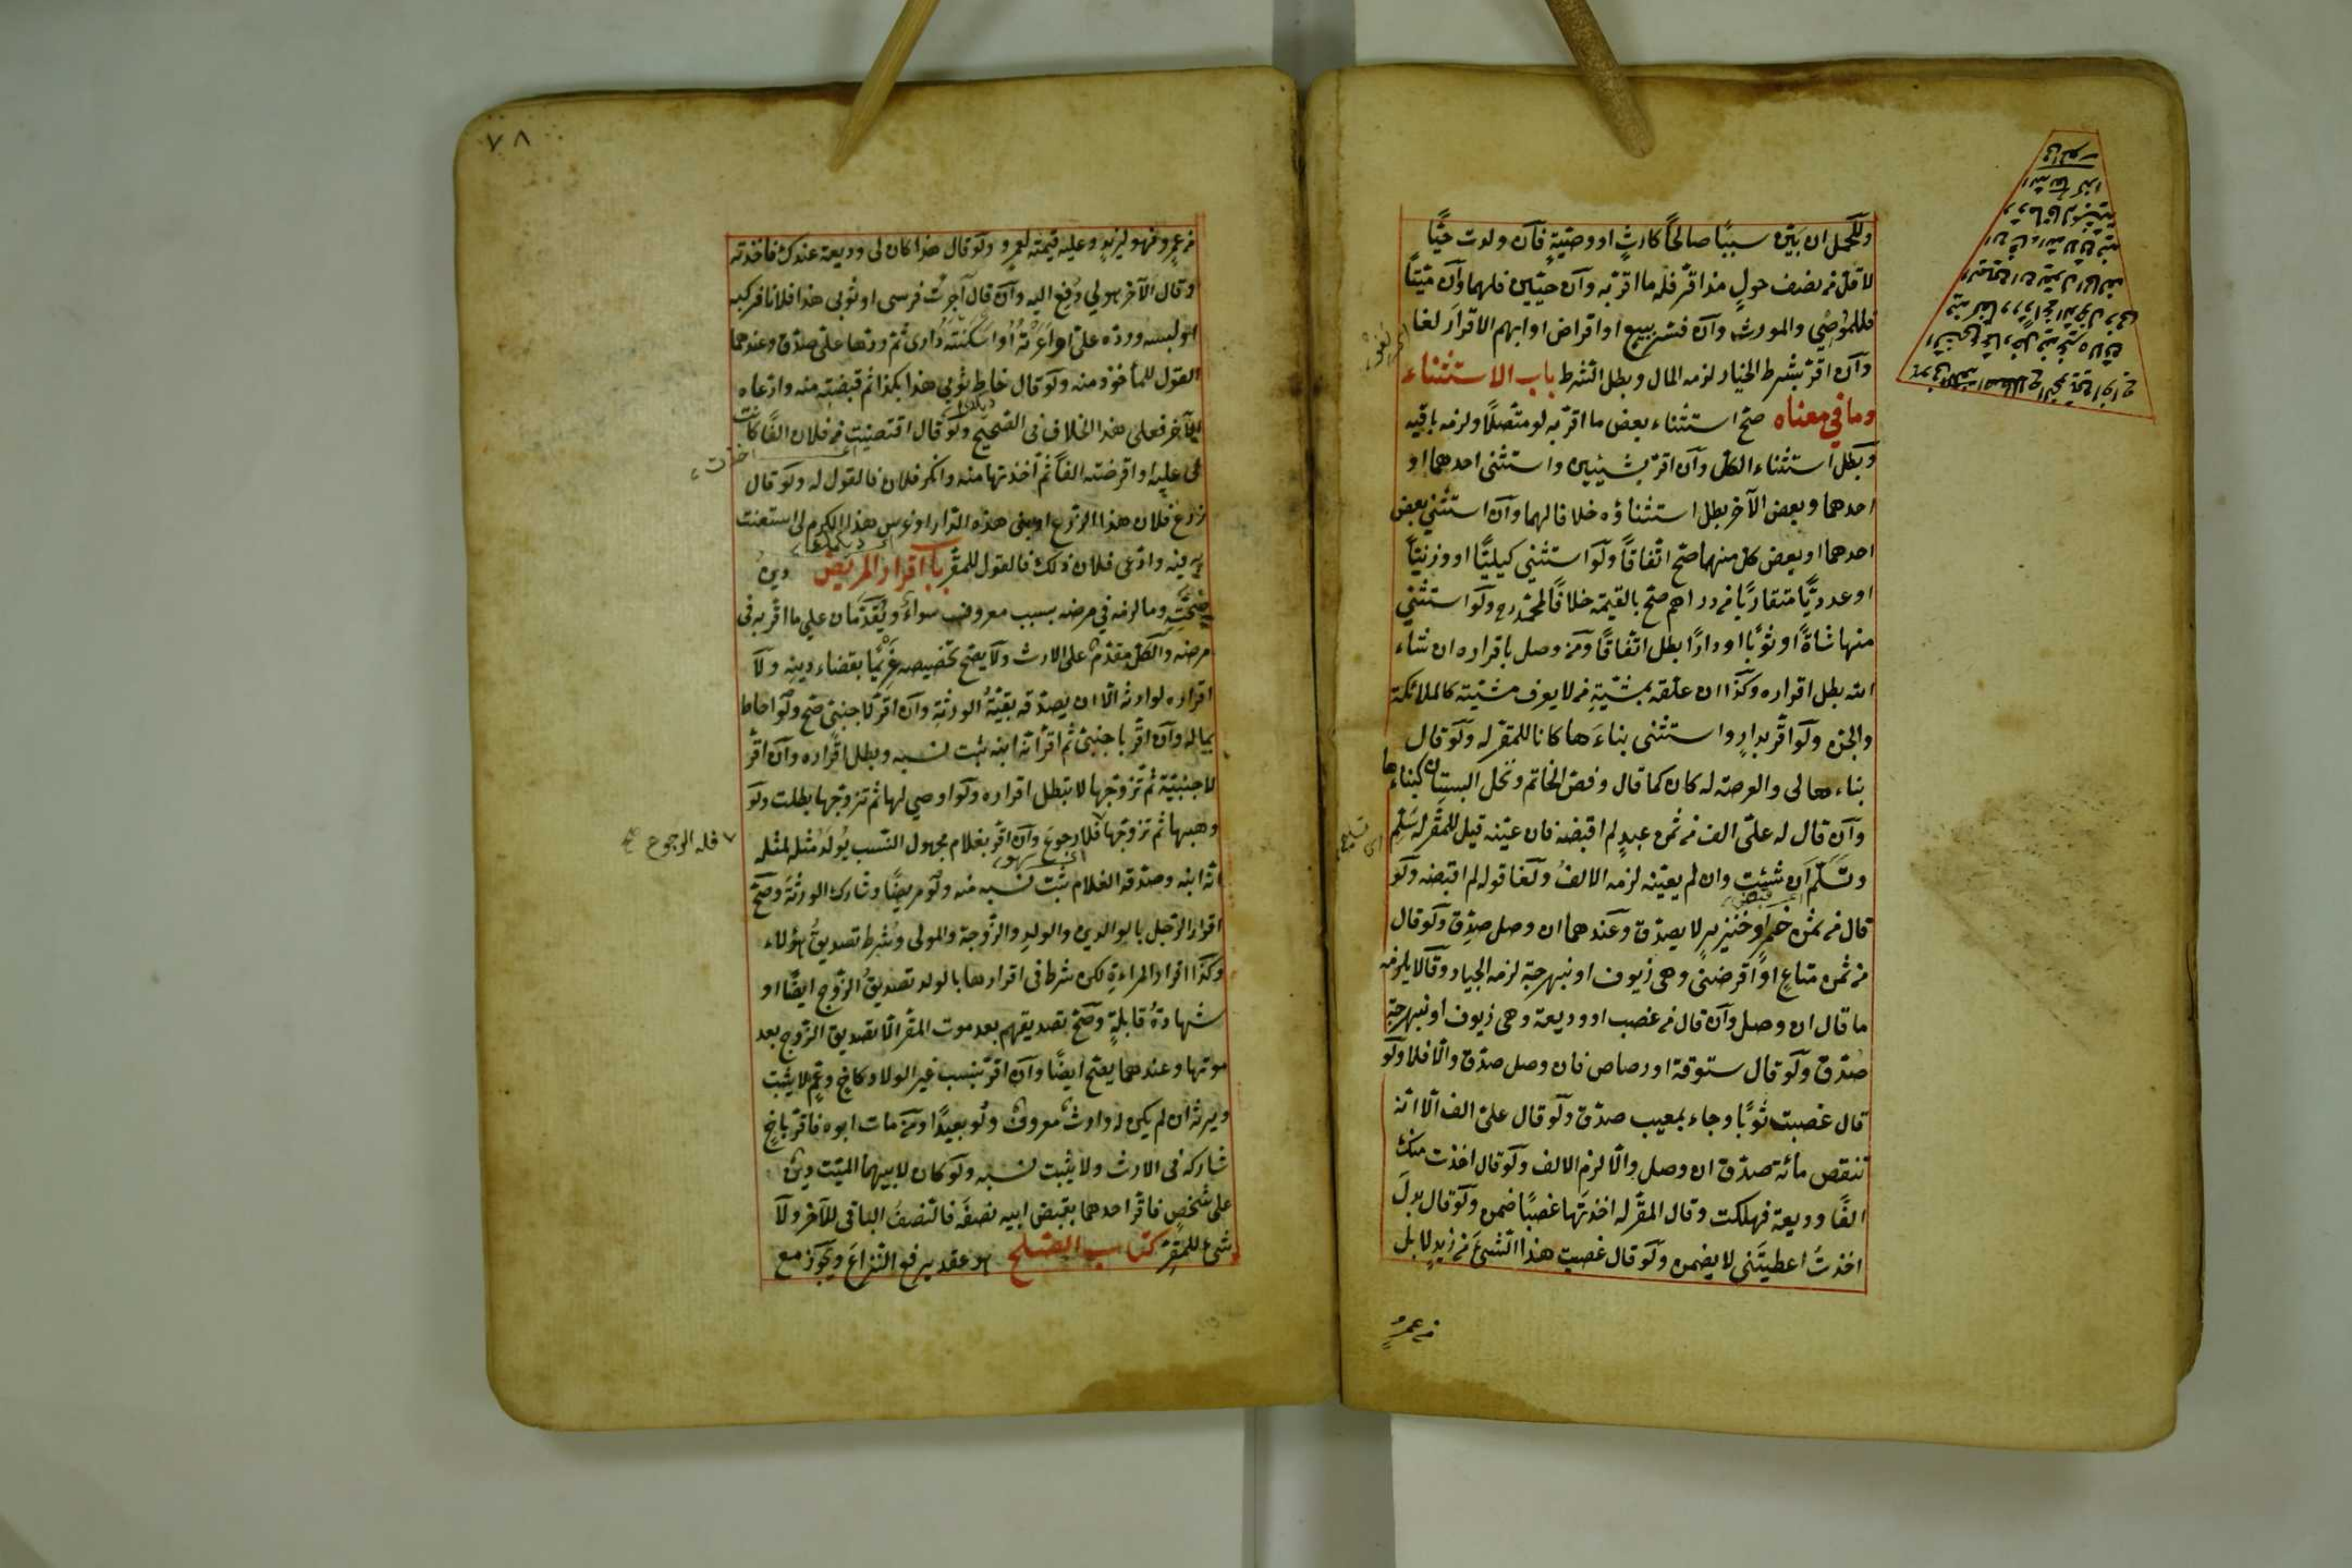 وللحمل ان بيّن سببًا صالحًا كارثٍ او وصيّةٍ فان ولدت حيًّا
لاقل من نصف حولٍ مذ اقرّ فله ما اقرّ به وان حيّين فلهما وان ميّتًا
فللموصي والمورث وان فسّر ببيع او اقراض او ابهم الاقرار لغا
وان اقرّ بشرط الخيار لزمه المال وبطل الشرط باب الاستثناء
وما في معناه صحّ استثناء بعض ما اقرّ به لو متّصلًا ولزمه باقيه
وبطل استثناء الكل وان اقرّ بشيئين واستثنى احدهما او
احدهما وبعض الآخر بطل استثناؤه خلافا لهما وان استثنى بعض
احدهما او بعض كل منهما صحّ اتّفاقًا ولو استثنى كيليًّا او وزنيًّا
او عدديًّا متقاربًا من دراهم صحّ بالقيمة خلافًا لمحمّد رح ولو استثنى
منها شاةً او ثوبًا او دارًا بطل اتّفاقًا ومن وصل باقراره ان شاء
الله بطل اقراره وكذا ان علّقه بمشيّةِ من لا يعرف مشيّته كالملائكة
والجنّ ولو اقرّ بدارٍ واستثنى بناءَها كانا للمقرّ له ولو قال
بناءها لى والعرصة له كان كما قال وفصّ الخاتم ونخل البستان كبناءها
وان قال له علىّ الف من ثمن عبدٍ لم اقبضه فان عيّنه قيل للمقرّ له سلّم
وتسلّم ان شئت وان لم يعيّنه لزمه الالفُ ولغا قوله لم اقبضه ولو
قال من ثمن خمر او خنزير لا يصدّق وعندهما ان وصل صدّق ولو قال
من ثمن متاع او اقرضنى وهى زيوف او نبهرجة لزمه الجياد وقالا يلزمه
ما قال ان وصل وان قال من غصب او وديعة وهى زيوف او نبهرجة
صدّق ولو قال ستوقة او رصاص فان وصل صدّق والّا فلا ولو
قال غصبت ثوبًا وجاء بمعيب صدّق ولو قال علىّ الف الّا انّه
تنقص مائة صدّق ان وصل والّا لزم الالف ولو قال اخذت منك
الفًا وديعة فهلكت وقال المقرّ له اخذتها غصبًا ضمن ولو قال بدل
اخذتُ اعطيتَنى لا يضمن ولو قال غصبت هذا الشئ من زيدٍ لا بل
من عمرٍو
٧٨
من عمرو فهو لزيد وعليه قيمته لعمرو ولو قال هذا كان لى وديعة عندك فاخذته
وقال الآخر هو لي دفع اليه وان قال آجرت فرسى او ثوبى هذا فلانا فركبه
او لبسه وردّه علىّ او اعرته او اسكنته دارى ثم ردّها علىّ صدّق وعندهما
القول للمأخوذ منه ولو قال خاط ثوبى هذا بكذا ثم قبضته منه وادّعاه
الآخر فعلى هذا الخلاف فى الصحيح ولو قال اقتضيت من فلان الفًا كانت
لى عليه او اقرضته الفًا ثم اخذتها منه وانكر فلان فالقول له ولو قال
زرع فلان هذا الزرع او بنى هذه الدار او غرس هذا الكرم لى استعنت
به فيه وادّعى فلان ذلك فالقول للمقرّ باب اقرار المريض دين
صحّته وما لزمه في مرضه بسبب معروف سواء ويقدّمان على ما اقرّ به فى
مرضه والكل مقدّم على الارث ولا يصحّ تخصيصه غريمًا بقضاء دينه ولا
اقراره لوارثه الّا ان يصدّقه بقيّةُ الورثةِ وان اقرّ لاجنبىّ صحّ ولو احاط
بماله وان اقرّ باجنبىّ ثم اقرّ انّه ابنه ثبت نسبه وبطل اقراره وان اقرّ
لاجنبيّة ثم تزوّجها لا يبطل اقراره ولو اوصى لها ثم تزوّجها بطلت ولو
وهبها ثم تزوّجها فلا رجوع وان اقرّ بغلام مجهول النسب يولد مثله لمثله
فله الرجوع
انّه ابنه وصدّقه الغلام ثبت نسبه منه ولو مريضًا وشارك الورثة وصحّ
اقرار الرّجل بالوالدين والولد والزّوجة والمولى وشرط تصديق هؤلاء
وكذا اقرار المراءة لكن شرط فى اقرارها بالولد تصديق الزّوج ايضًا او
شهادة قابلةٍ وصحّ تصديقهم بعد موت المقرّ الّا تصديق الزّوج بعد
موتها وعندهما يصحّ ايضًا وان اقرّ بنسب غير الولاد كاخ وعمّ لا يثبت
ويرث ان لم يكن له وارث معروف ولو بعيدًا ومن مات ابوه فاقرّ باخٍ
شاركه فى الارث ولا يثبت نسبه ولو كان لابيهما الميّت دين
على شخصٍ فاقرّ احدهما بقبض ابيه نصفَه فالنّصفُ الباقى للآخر ولا
شئ للمقرّ كتاب الصّلح هو عقد يرفع النّزاعَ ويجوز مع